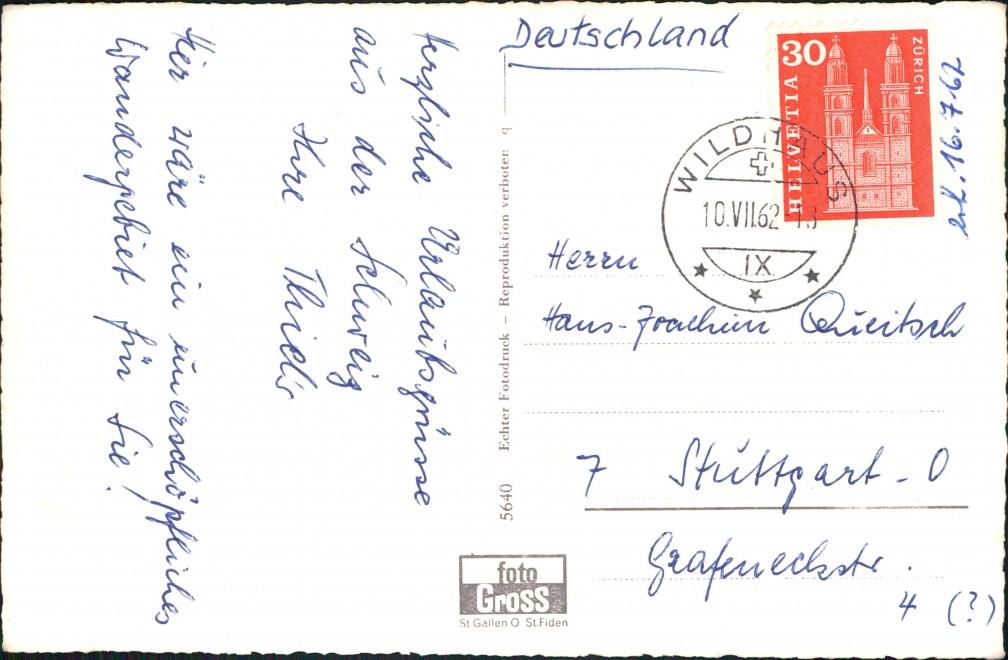 Herzliche Urlaubsgrüsse
aus der Schweiz
Ihre
Hier wäre ein unerschöpfliches
Wandergebiet für Sie!
Echter Fotodruck – Reproduktion verboten q
5640
foto
Gross
St.Gallen O St.Fiden
Deutschland
30
HELVETIA
ZÜRICH
WILDHAUS
10.VII.62-13
IX
erh. 16.7.62
Herrn
Hans-Joachim Queitsch
7 Stuttgart-O
Grafeneckstr.
4 (?)